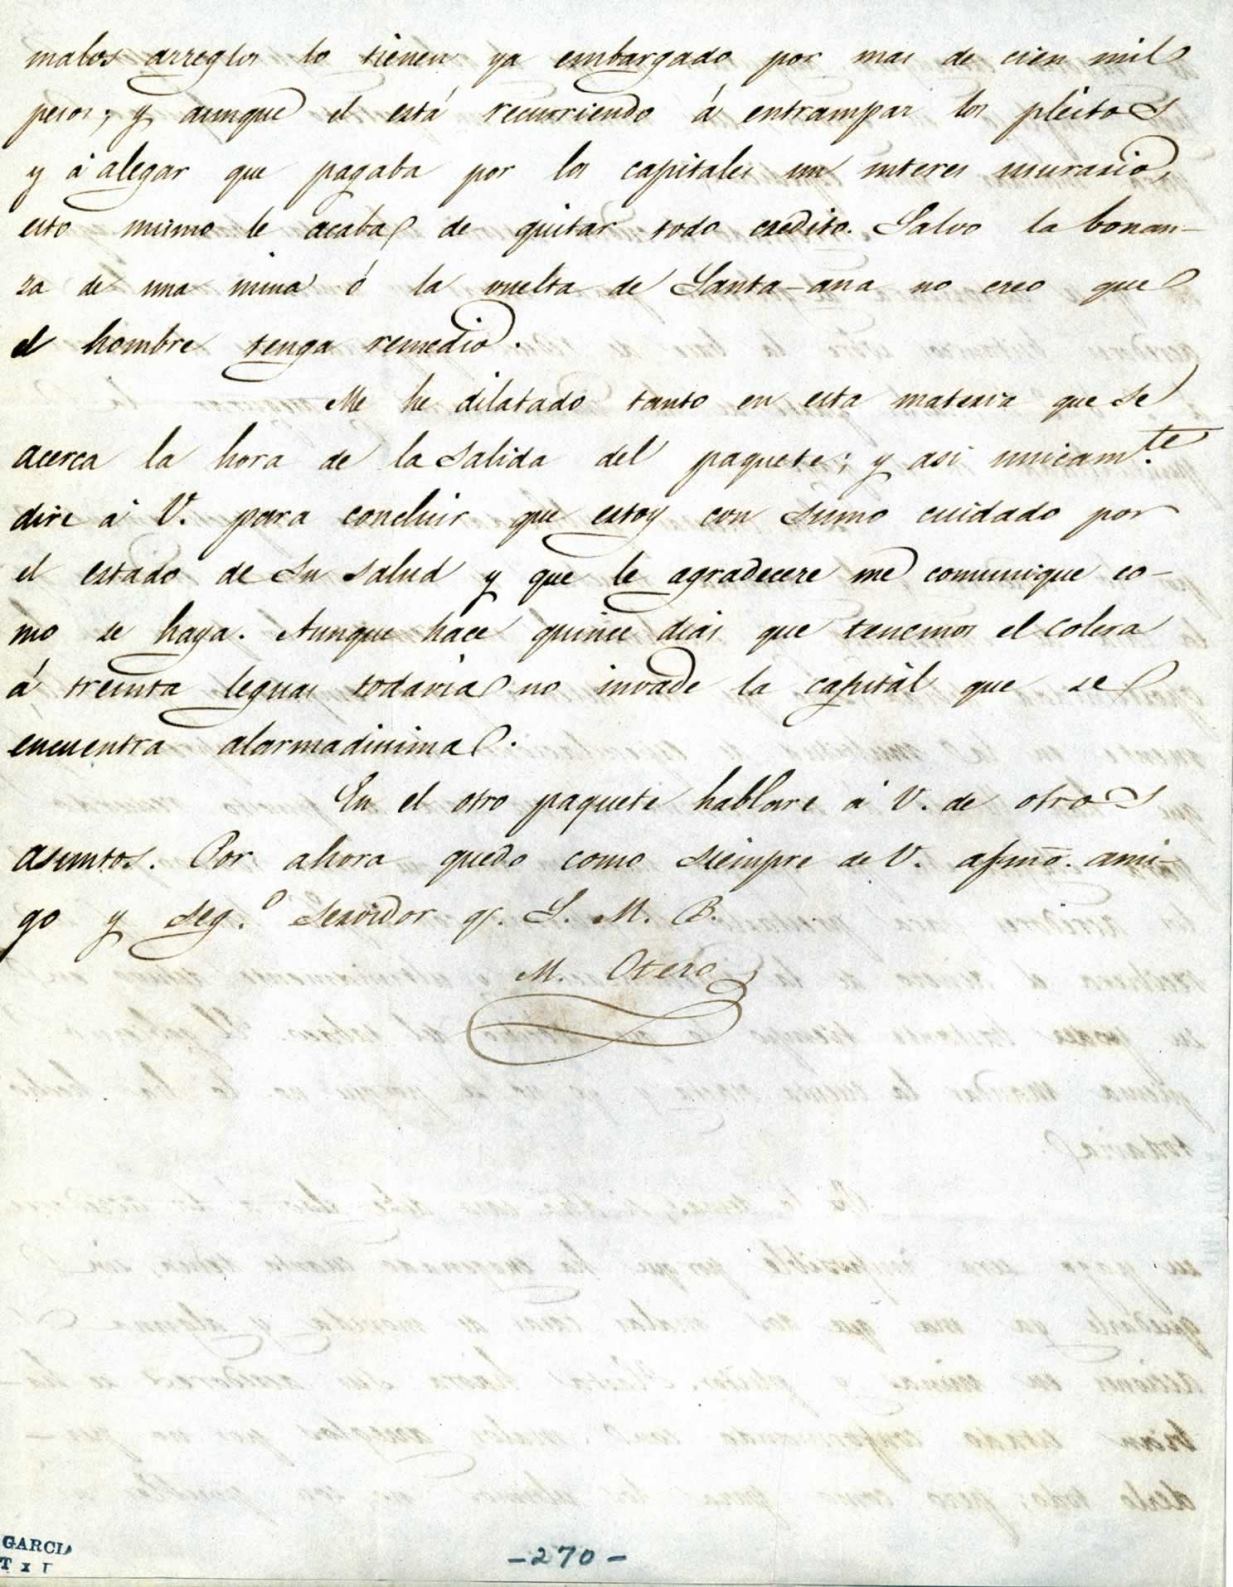 malos arreglos lo tienen ya embargado por mas de cien mil
pesos; y aunque el está recurriendo á entrampar los pleitos
y á alegar que pagaba por los capitales un interes usurario,
esto mismo le acaba de quitar todo credito. Salvo la bonan-
za de una mina ó la vuelta de Santa-ana no creo que
el hombre tenga remedio.
Me he dilatado tanto en esta materia que se
acerca la hora de la salida del paquete; y asi unicam.te
dire á V. para concluir que estoy con sumo cuidado por
el estado de su salud y que le agradecere me comunique co-
mo se haya. Aunque hace quince dias que tenemos el colera
á treinta leguas todavia no invade la capital que se
encuentra alarmadisima.
En el otro paquete hablare á V. de otros
asuntos. Por ahora quedo como siempre de V. afmo. ami-
go y seg.o servidor q. S. M. B.
M. Otero
GARCIA
- 270 -